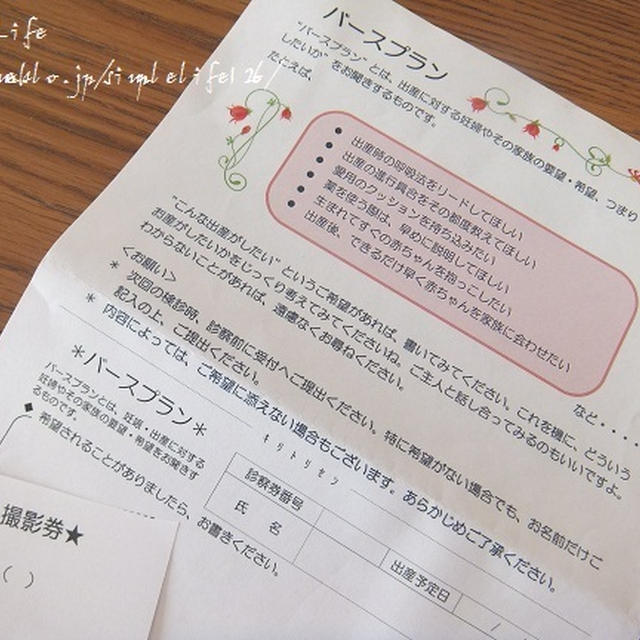 Life
eblo.jp/simplelife126/
バースプラン
"バースプラン"とは、出産に対する妊婦やその家族の要望・希望、つまり
したいか"をお聞きするものです。
たとえば、
● 出産時の呼吸法をリードしてほしい
● 出産の進行具合をその都度教えてほしい
● 愛用のクッションを持ち込みたい
● 薬を使う際は、早めに説明してほしい
● 生まれてすぐの赤ちゃんを抱っこしたい
● 出産後、できるだけ早く赤ちゃんを家族に会わせたい
など・・・・
"こんな出産がしたい"というご希望があれば、書いてみてください。これを機に、どういう
お産がしたいかをじっくり考えてみてくださいね。ご主人と話し合ってみるのもいいですよ。
わからないことがあれば、遠慮なくお尋ねください。
<お願い>
* 次回の検診時、診察前に受付へご提出ください。特に希望がない場合でも、お名前だけご
記入の上、ご提出ください。
* 内容によっては、ご希望に添えない場合もございます。あらかじめご了承ください。
キリトリセン
*バースプラン*
バースプランとは、妊娠・出産に対する
妊婦やその家族の要望・希望をお聞きす
るものです。
◆ 希望されることがありましたら、お書きください。
診察券番号
氏 名
出産予定日
/
撮影券★
( )